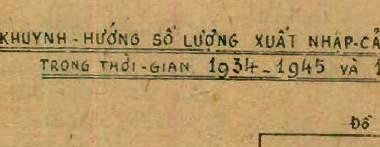 KHUYNH-HƯỚNG SỐ LƯỢNG XUẤT NHẬP-CẢ
TRONG THỜI-GIAN 1934-1945 VÀ 1
Đồ